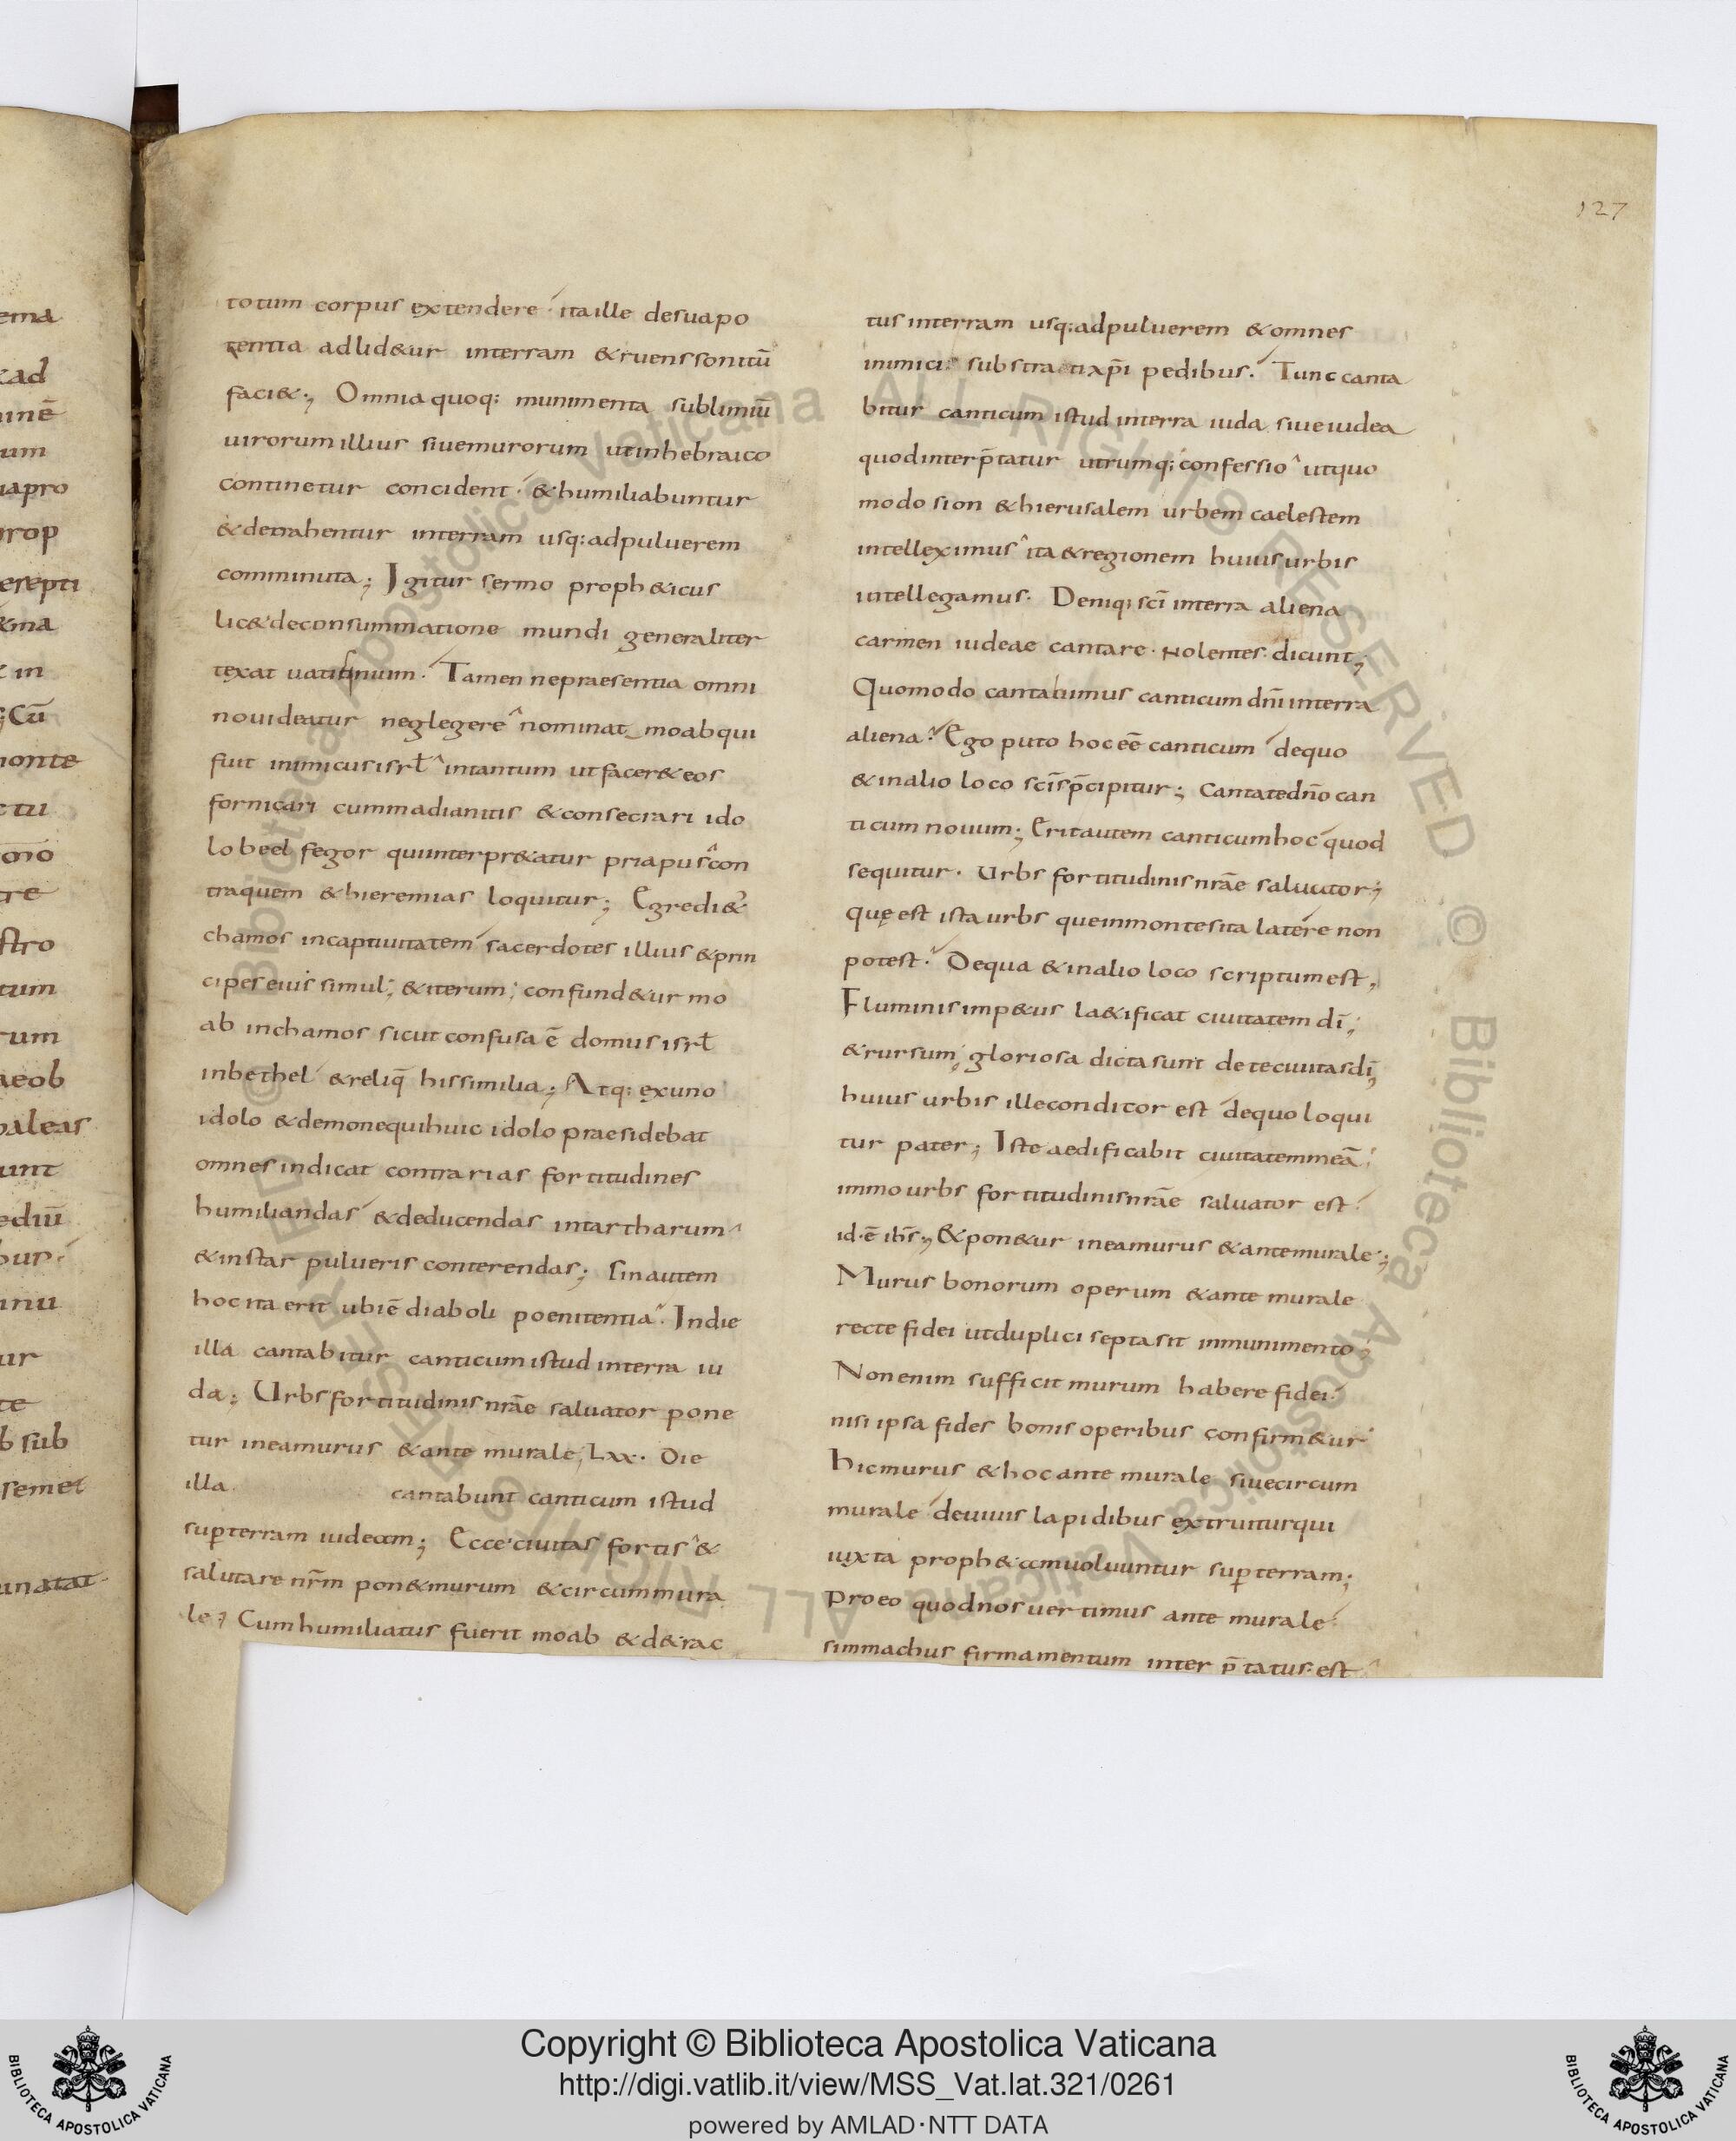 127
totum corpus extendere ita ille de sua po
tentia adlid&ur in terram & ruens sonitū
faci&; Omnia quoq: munimenta sublimiū
uirorum illius siue murorum ut in hebraico
continetur concident. & humiliabuntur
& detrahentur in terram usq: ad puluerem
comminuta; Igitur sermo proph&icus
lic& de consummatione mundi generaliter
texat uaticinium. Tamen ne praesentia omni
no uideatur neglegere nominat moab qui
fuit inimicus isrł in tantum ut facer& eos
fornicari cum madianitis & consecrari ido
lo beel fegor qui interpr&atur priapus con
tra quem & hieremias loquitur; Egredi&
chamos in captiuitatem sacerdotes illius & prin
cipes eius simul; & iterum; confund&ur mo
ab in chamos sicut confusa ē domus isrł
in bethel & reliq̄ his similia; Atq: ex uno
idolo & demone qui huic idolo praesidebat
omnes indicat contrarias fortitudines
humiliandas & deducendas in tartharum
& instar pulueris conterendas; Sin autem
hoc ita erit ubi ē diaboli poenitentia. In die
illa cantabitur canticum istud in terra iu
da; Urbs fortitudinis nrāe saluator pone
tur in ea murus & ante murale; Lxx. Die
illa cantabunt canticum istud
sup terram iudeam; Ecce ciuitas fortis &
salutare nrm̄ pon& murum & circum mura
le; Cum humiliatus fuerit moab & d&rac
tus in terram usq: ad puluerem & omnes
inimici substrati xp̄i pedibus. Tunc canta
bitur canticum istud in terra iuda siue iudea
quod interp̄tatur utrumq; confessio ut quo
modo sion & hierusalem urbem caelestem
intelleximus ita & regionem huius urbis
intellegamus. Deniq; scī in terra aliena
carmen iudeae cantare nolentes dicunt;
Quomodo cantabimus canticum dn̄i in terra
aliena. Ego puto hoc eē canticum de quo
& in alio loco scīs p̄cipitur; Cantate dn̄o can
ticum nouum; Erit autem canticum hoc quod
sequitur. Urbs fortitudinis nrāe saluator;
quę est ista urbs que in monte sita latere non
potest. De qua & in alio loco scriptum est,
Fluminis imp&us la&ificat ciuitatem dī;
& rursum; gloriosa dicta sunt de te ciuitas dī,
huius urbis ille conditor est de quo loqui
tur pater; Iste aedificabit ciuitatem meā;
immo urbs fortitudinis nrāe saluator est
id.ē ihs̄; & pon&ur in ea murus & ante murale;
Murus bonorum operum & ante murale
recte fidei ut duplici septa sit inmunimento
Non enim sufficit murum habere fidei
nisi ipsa fides bonis operibus confirm&ur
hic murus & hoc ante murale siue circum
murale de uiuis lapidibus extruitur qui
iuxta proph&am uoluuntur sup terram;
Pro eo quod nos uertimus ante murale
simmachus firmamentum interp̄tatus est
Copyright © Biblioteca Apostolica Vaticana
http://digi.vatlib.it/view/MSS_Vat.lat.321/0261
powered by AMLAD·NTT DATA